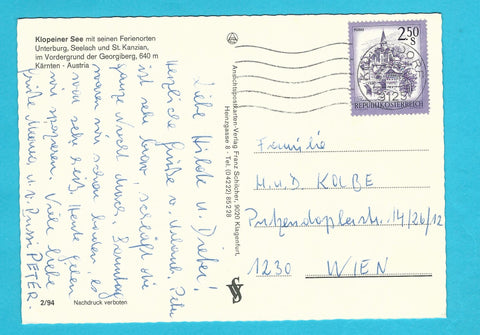 Klopeiner See mit seinen Ferienorten
Unterburg, Seelach und St. Kanzian,
im Vordergrund der Georgiberg, 640 m
Kärnten - Austria
Liebe Hilde u. Dieter!
Herzliche Grüße v. Urlaub, Peter
ist sehr brav, schläft die
ganze Nacht durch. Samstag
waren wir schon baden, es
war sehr heiß. Heute gehen
wir spazieren. Viele liebe
Grüße Mama, u. v. Bussi PETER.
2/94
Nachdruck verboten
Ansichtspostkarten-Verlag Franz Schilcher, 9020 Klagenfurt,
Heinzgasse 8 · Tel. (04222) 85 2 28
2.50
S
REPUBLIK ÖSTERREICH
Familie
H. u. D. KOLBE
14/26/12
1230 WIEN